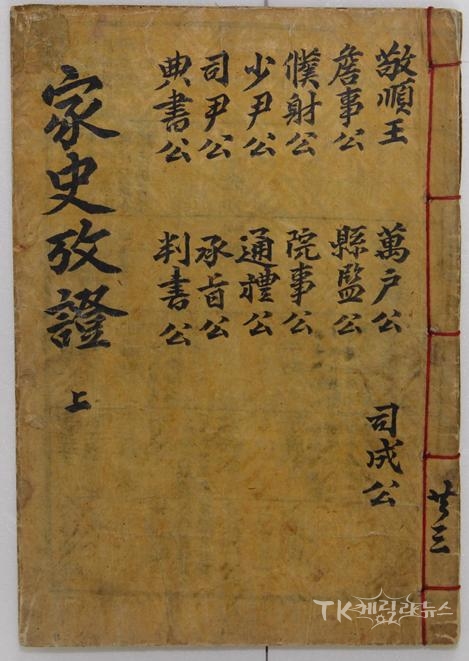 共三
敬順王 萬户公 司成公
詹事公 縣監公
僕射公 院事公
少尹公 通禮公
司尹公 承旨公
典書公 判書公
家史攷證 上
TK게릴라뉴스